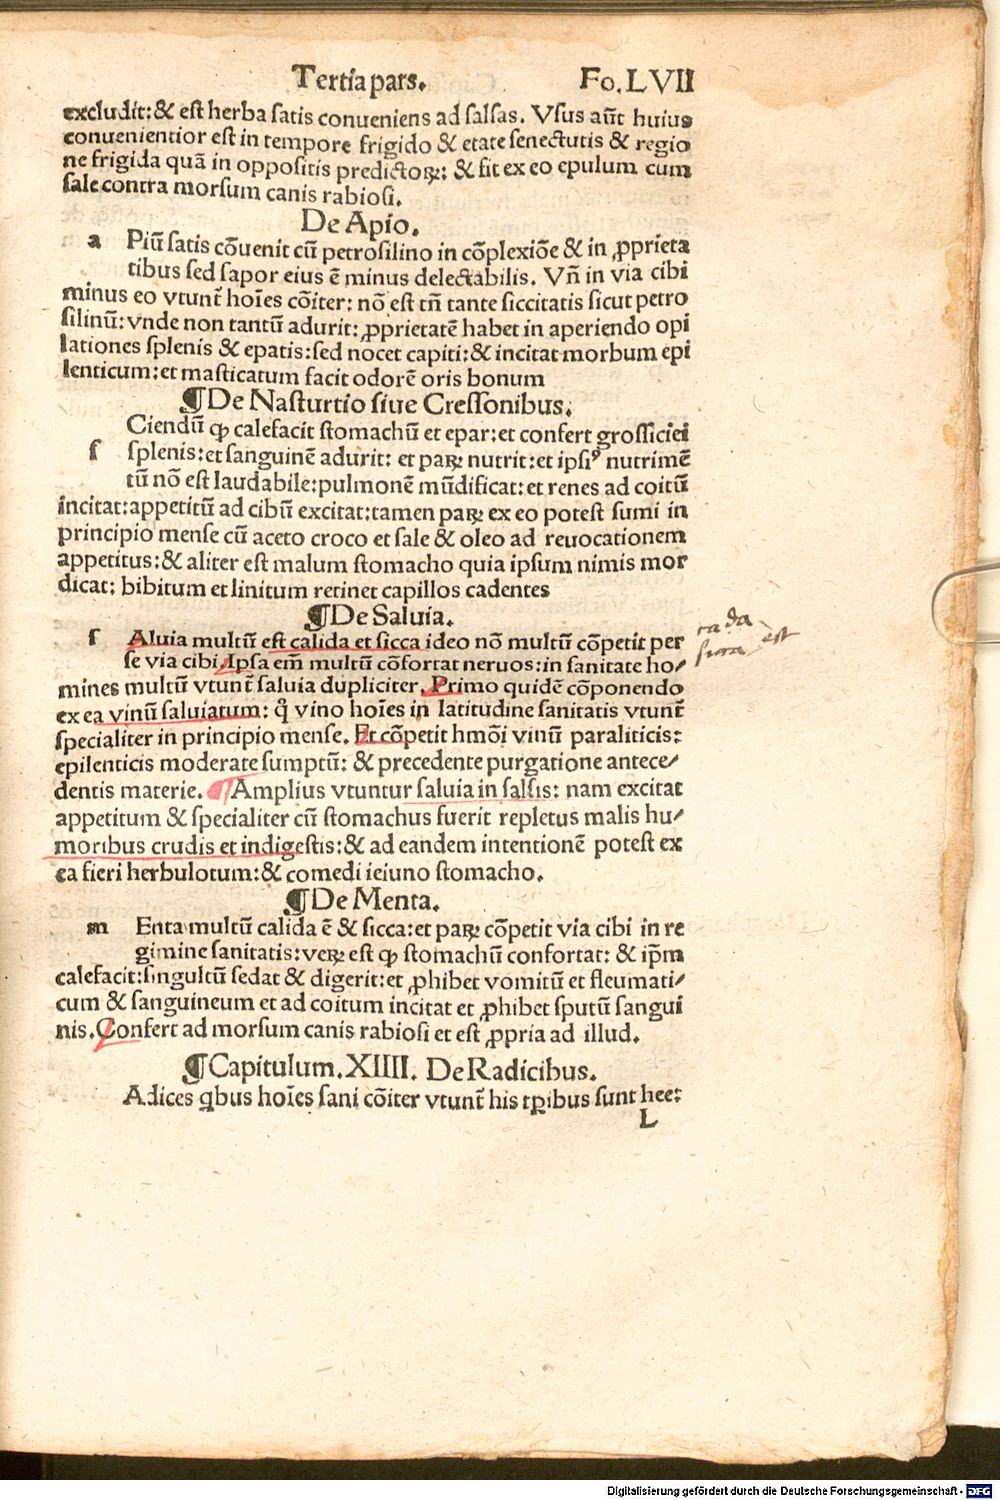 Tertia pars. Fo. LVII
excludit: & est herba satis conueniens ad salsas. Vsus aūt huius
conuenientior est in tempore frigido & etate senectutis & regio
ne frigida quā in oppositis predictoꝝ: & fit ex eo epulum cum
sale contra morsum canis rabiosi.
De Apio.
a Piū satis cōuenit cū petrosilino in cōplexiōe & in ꝓprieta
tibus sed sapor eius ē minus delectabilis. Vn̄ in via cibi
minus eo vtunt̄ hoīes cōiter: nō est tn̄ tante siccitatis sicut petro
silinū: vnde non tantū adurit: ꝓprietatē habet in aperiendo opi
lationes splenis & epatis: sed nocet capiti: & incitat morbum epi
lenticum: et masticatum facit odorē oris bonum
¶ De Nasturtio siue Cressonibus.
Ciendū ꝙ calefacit stomachū et epar: et confert grossiciei
s splenis: et sanguinē adurit: et paꝝ nutrit: et ipsiꝰ nutrimē
tū nō est laudabile: pulmonē mūdificat: et renes ad coitū
incitat: appetitū ad cibū excitat: tamen paꝝ ex eo potest sumi in
principio mense cū aceto croco et sale & oleo ad reuocationem
appetitus: & aliter est malum stomacho quia ipsum nimis mor
dicat: bibitum et linitum retinet capillos cadentes
¶ De Saluia.
s Aluia multū est calida et sicca ideo nō multū cōpetit per
se via cibi. Ipsa em̄ multū cōfortat neruos: in sanitate ho/
mines multū vtunt̄ saluia dupliciter. Primo quidē cōponendo
ex ea vinū saluiatum: q̄ vino hoīes in latitudine sanitatis vtunt̄
specialiter in principio mense. Et cōpetit hmōi vinū paraliticis:
epilenticis moderate sumptū: & precedente purgatione antece/
dentis materie. ¶ Amplius vtuntur saluia in salsis: nam excitat
appetitum & specialiter cū stomachus fuerit repletus malis hu/
moribus crudis et indigestis: & ad eandem intentionē potest ex
ea fieri herbulotum: & comedi ieiuno stomacho.
¶ De Menta.
m Enta multū calida ē & sicca: et paꝝ cōpetit via cibi in re
gimine sanitatis: veꝝ est ꝙ stomachū confortat: & ip̄m
calefacit: singultū sedat & digerit: et ꝓhibet vomitū et fleumati/
cum & sanguineum et ad coitum incitat et ꝓhibet sputū sangui
nis. Confert ad morsum canis rabiosi et est ꝓpria ad illud.
¶ Capitulum. XIIII. De Radicibus.
Adices qbus hoīes sani cōiter vtunt̄ his tꝑibus sunt hee:
L
est
Digitalisierung gefördert durch die Deutsche Forschungsgemeinschaft - DFG